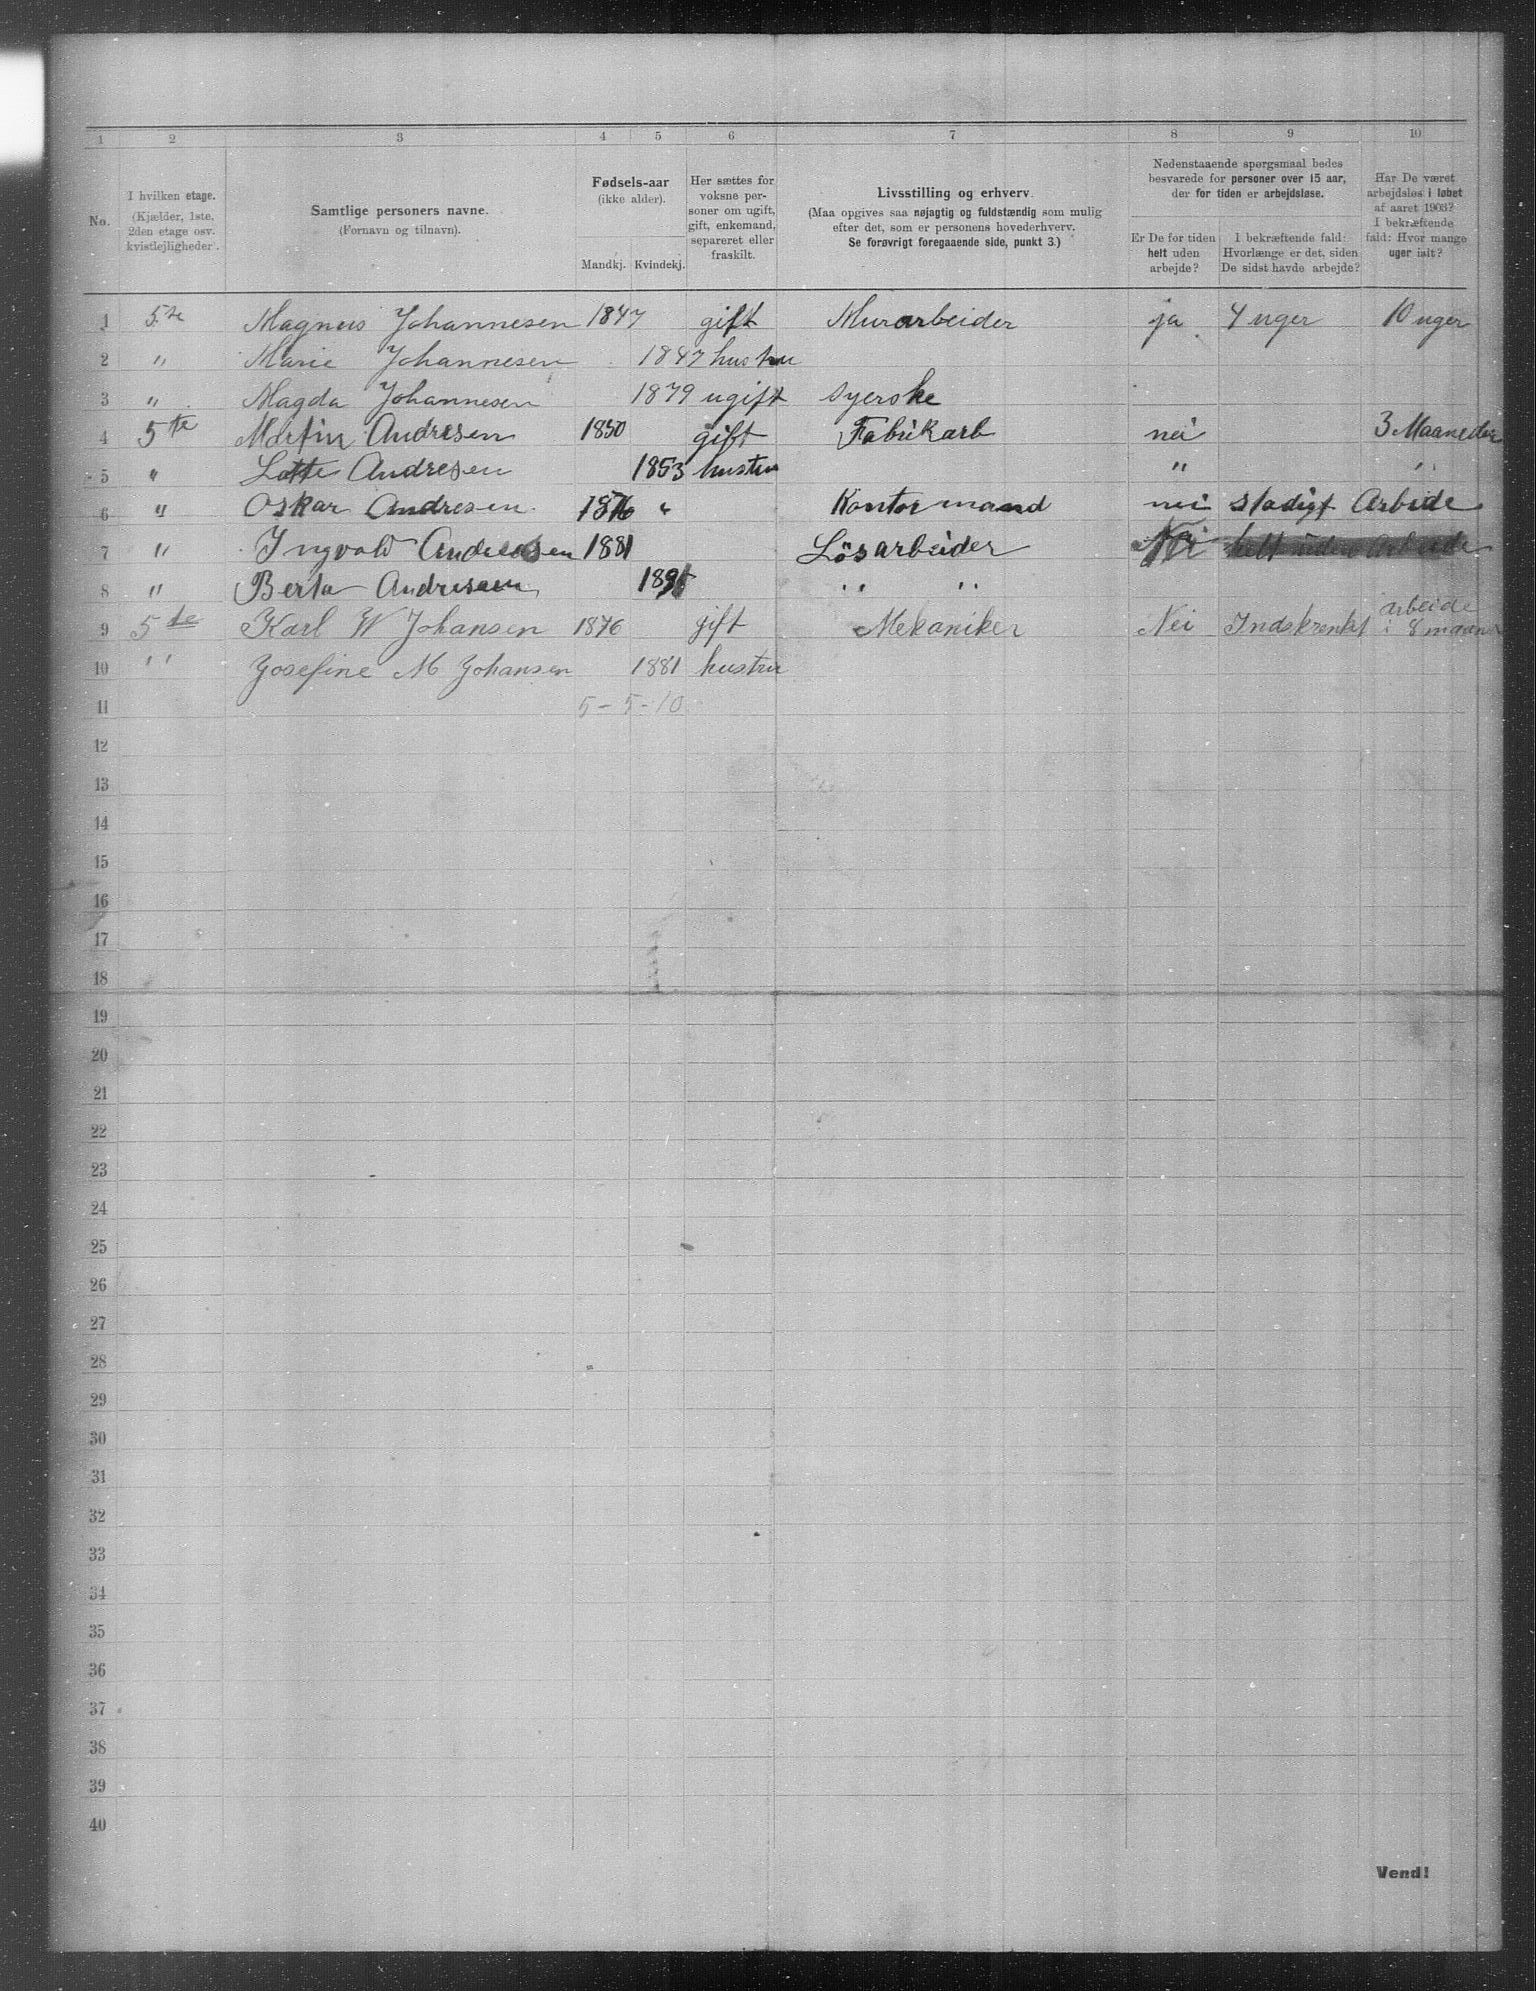 1 2 3 4 5 6 7 8 9 10
No.
I hvilken etage.
(Kjælder, 1ste,
2den etage osv.
kvistlejligheder).
Samtlige personers navne.
(Fornavn og tilnavn).
Fødsels-aar
(ikke alder).
Mandkj. Kvindekj.
Her sættes for
voksne per-
soner om ugift,
gift, enkemand,
separeret eller
fraskilt.
Livsstilling og erhverv.
(Maa opgives saa nøjagtig og fuldstændig som mulig
efter det, som er personens hovederhverv.
Se forøvrigt foregaaende side, punkt 3.)
Nedenstaaende spørgsmaal bedes
besvarede for personer over 15 aar,
der for tiden er arbejdsløse.
Er De for tiden
helt uden
arbejde?
I bekræftende fald:
Hvorlænge er det, siden
De sidst havde arbejde?
Har De været
arbejdsløs i løbet
af aaret 1903?
I bekræftende
fald: Hvor mange
uger ialt?
1 5te Magnus Johannesen 1847 gift Murarbeider ja 4 uger 10 uger
2 " Marie Johannesen 1847 hustru
3 " Magda Johannesen 1879 ugift syerske
4 5te Martin Andresen 1850 gift Fabrikarb nei 3 Maaneder
5 " Lotte Andresen 1853 hustru " "
6 " Oskar Andresen 1876 " Kontormand nei stadigt Arbeide
7 " Ingvald Andresen 1881 Løsarbeider Nei helt uden Arbeide
8 " Berta Andresen " "
9 5te Karl W Johansen 1876 gift Mekaniker Nei Indskrenket arbeide
i 8 maaner
10 " Josefine M Johansen 1881 hustru
11 5-5-10
12
13
14
15
16
17
18
19
20
21
22
23
24
25
26
27
28
29
30
31
32
33
34
35
36
37
38
39
40
Vend!